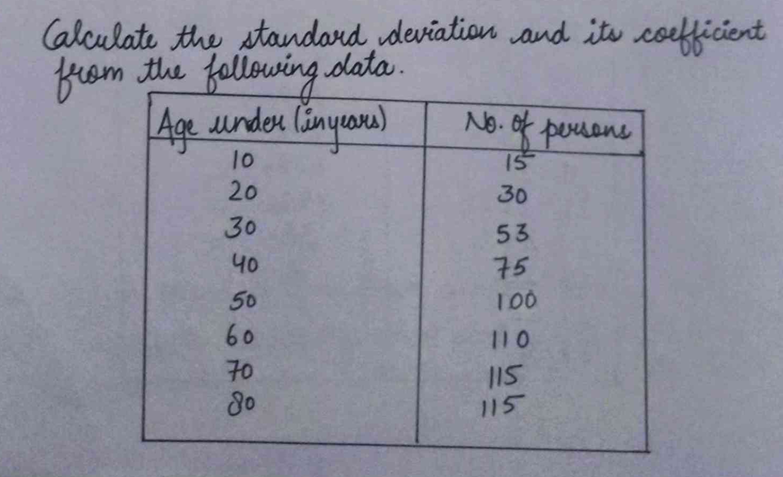 Calculate the standard deviation and its coefficient
from the following data.
Age under (in years) No. of persons
10 15
20 30
30 53
40 75
50 100
60 110
70 115
80 115